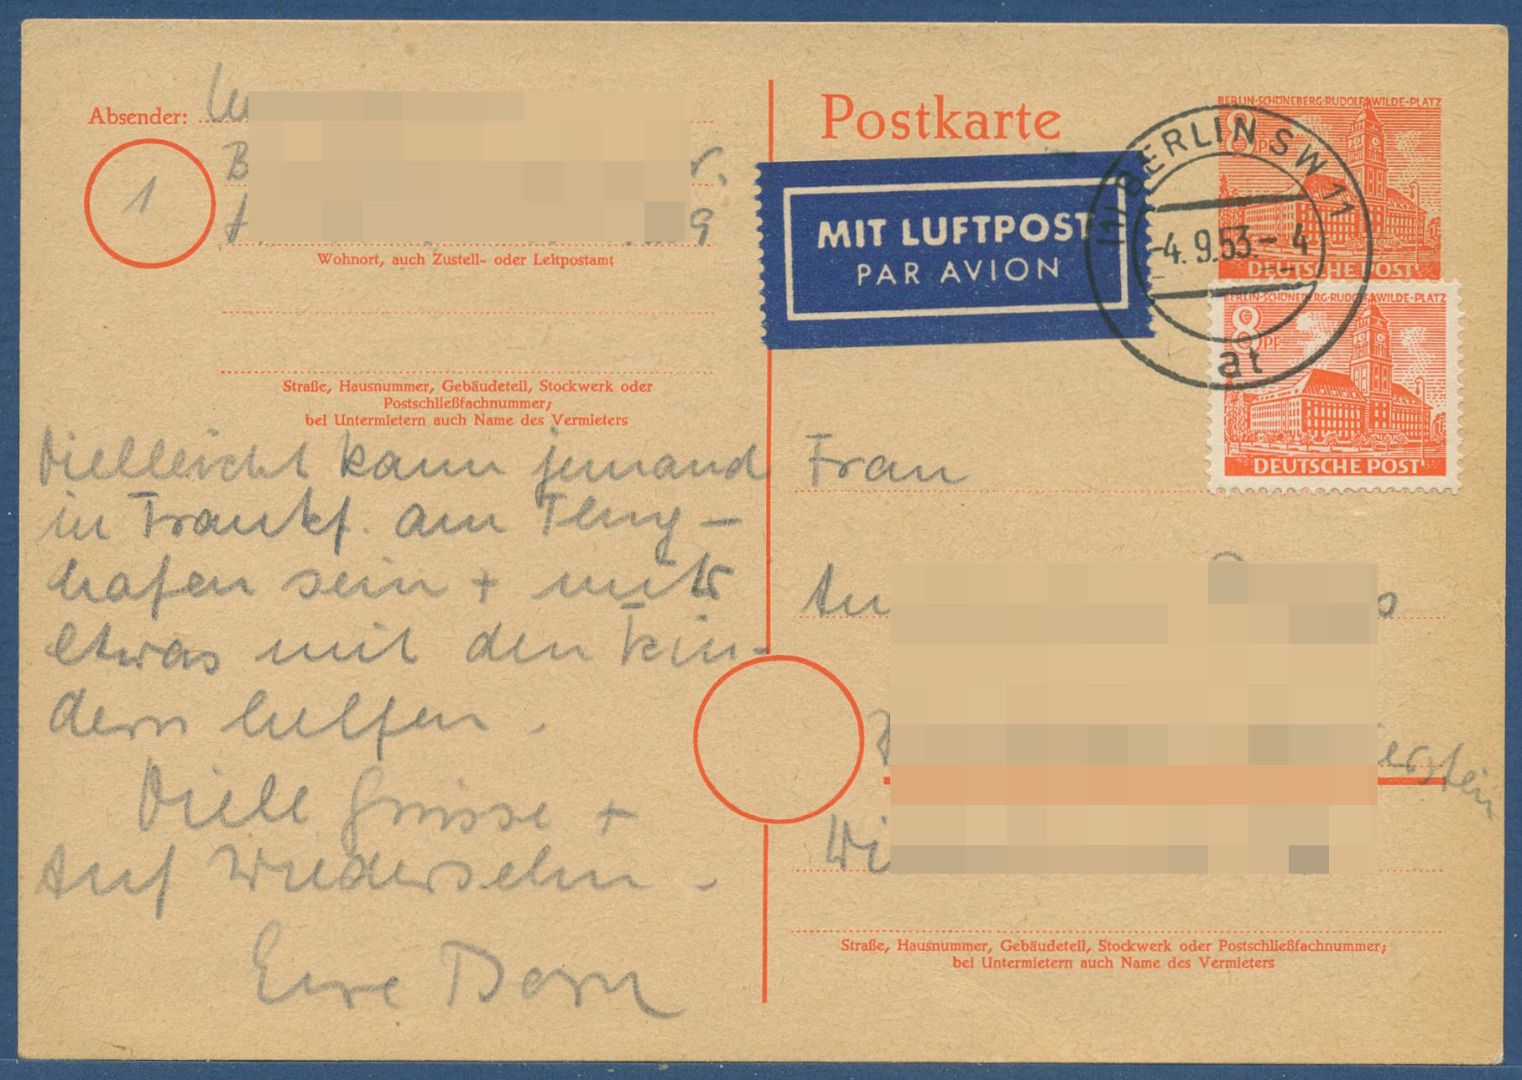 Absender:
B
r.
1
9
Wohnort, auch Zustell- oder Leitpostamt
Straße, Hausnummer, Gebäudeteil, Stockwerk oder
Postschließfachnummer;
bei Untermietern auch Name des Vermieters
Vielleicht kann jemand
in Frankf. am Flug-
hafen sein +
etwas mit den Kin-
dern helfen.
Viele Grüsse +
Auf Wiedersehn.
Eure Dorn
Postkarte
MIT LUFTPOST
PAR AVION
(1) BERLIN SW 11
-4.9.53.- 4
at
BERLIN-SCHÖNEBERG·RUDOLF-WILDE-PLATZ
8 PF
DEUTSCHE POST
BERLIN-SCHÖNEBERG·RUDOLF-WILDE-PLATZ
8 PF
DEUTSCHE POST
Frau
An
erstein
Wi
Straße, Hausnummer, Gebäudeteil, Stockwerk oder Postschließfachnummer;
bei Untermietern auch Name des Vermieters